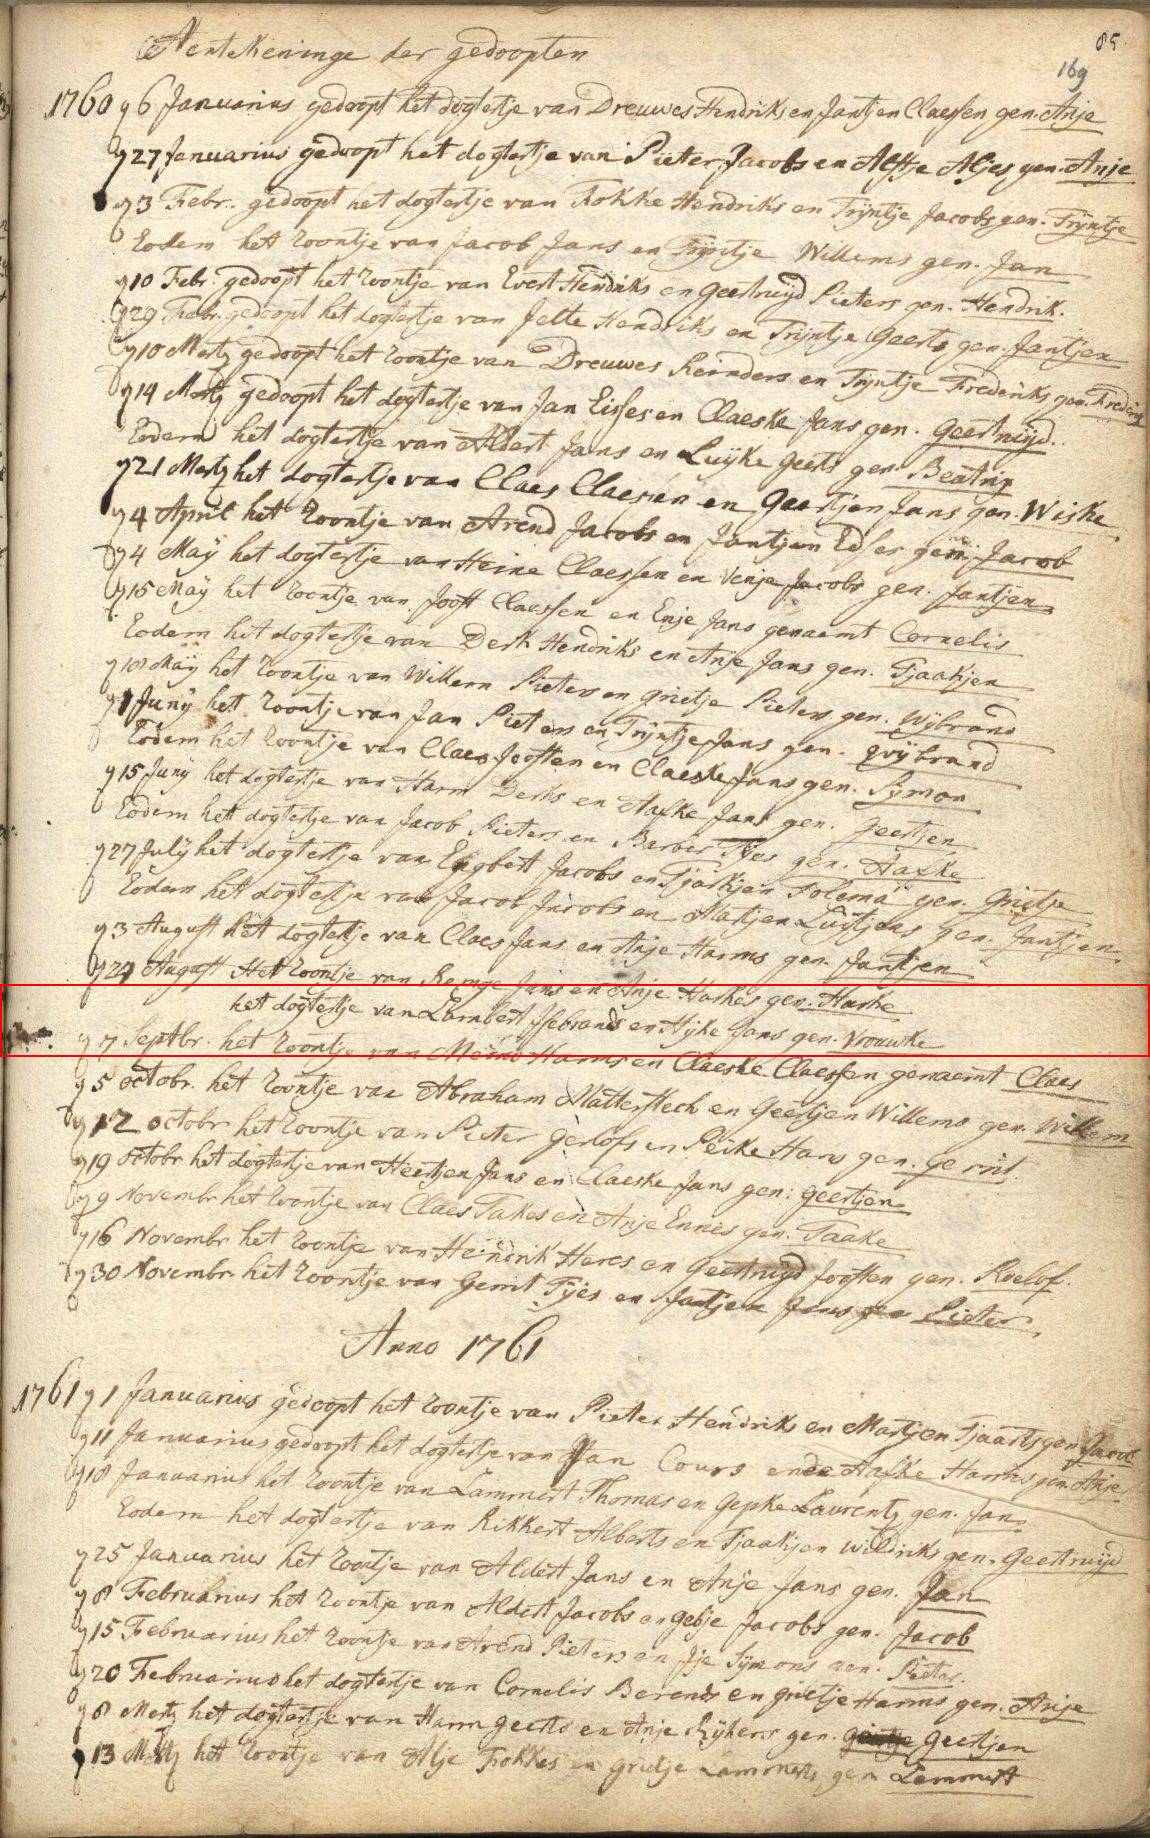 Aentekeninge der gedoopten
85
169
1760 y 6 Januarius gedoopt het dogtertje van Dreuwes Hendriks en Jantjen Claessen gen. Anje
y 27 Januarius gedoopt het dogtertje van Pieter Jacobs en Aeltje Aljes gen. Anje
y 3 Febr. gedoopt het dogtertje van Fokke Hendriks en Trijntje Jacobs gen. Trijntje
Eodem het zoontje van Jacob Jans en Trijntje Willems gen. Jan
y 10 Febr. gedoopt het zoontje van Evert Hendriks en Geertruijd Pieters gen. Hendrik.
y 29 Febr. gedoopt het dogtertje van Jelte Hendriks en Trijntje Geerts gen. Jantjen
y 10 Mertz gedoopt het zoontje van Dreuwes Reinders en Trijntje Frederiks gen. Frederik
y 14 Mertz gedoopt het dogtertje van Jan Eisses en Claeske Jans gen. Geertruijd.
Eodem het dogtertje van Aldert Jans en Luijke Geerts gen. Beatrix
y 21 Mertz het dogtertje van Claes Claessen en Geertjen Jans gen. Wiske
y 4 April het zoontje van Arend Jacobs en Jantjen Edses gen. Jacob
y 4 Maÿ het dogtertje van Heine Claessen en Venje Jacobs gen. Jantjen
y 15 Maÿ het zoontje van Jooft Claessen en Enje Jans genaemt Cornelis
Eodem het dogtertje van Derk Hendriks en Anje Jans gen. Tjaakjen
y 18 Maÿ het zoontje van Willem Pieters en Grietje Pieters gen. Wijbrand
y 1 Junÿ het zoontje van Jan Pieters en Trijntje Jans gen. Wijbrand
Eodem het zoontje van Claes Joosten en Claeske Jans gen. Sijmon
y 15 Junÿ het dogtertje van Harm Derks en Aafke Jans gen. Geertjen
Eodem het dogtertje van Jacob Pieters en Barber Tijes gen. Aafke
y 27 Julÿ het dogtertje van Engbert Jacobs en Tjaikjen Folema gen. Grietje
Eodem het dogtertje van Jacob Jacobs en Martjen Luitjens gen. Jantjen
y 3 August het dogtertje van Claes Jans en Anje Harms gen. Jantjen
y 24 August Het zoontje van Remge Jans en Anje Harkes gen. Harke
het dogtertje van Lambert Jsebrands en Hijke Jans gen. Vrouwke
y 7 Septbr. het zoontje van Meine Harms en Claeske Claessen genaemt Claes
y 5 octobr. het zoontje van Abraham Matterstech en Geertjen Willems gen. Willem
y 12 octobr het zoontje van Pieter Gerlofs en Peike Hans gen. Gerrit.
y 19 octobr het dogtertje van Heertjen Jans en Claeske Jans gen: Geertjen
y 9 Novembr het zoontje van Claes Takes en Anje Ennes gen. Taake
y 16 Novembr het zoontje van Hendrik Heres en Geertruijd Joosten gen. Roelof.
y 30 Novembr het zoontje van Gerrit Tijes en Jantjen Jans gen Pieter.
Anno 1761
1761 y 1 Januarius gedoopt het zoontje van Pieter Hendriks en Martjen Tjaarts gen. Jacob
y 11 Januarius gedoopt het dogtertje van Jan Cours ende Aafke Harms gen. Anje
y 18 Januarius het zoontje van Lammert Thomas en Gepke Laurents gen. Jan
Eodem het dogtertje van Rikkert Alberts en Tjaakjen Wildriks gen. Geertruijd
y 25 Januarius het zoontje van Aldert Jans en Anje Jans gen. Jan
y 8 Februarius het zoontje van Aldert Jacobs en Gebje Jacobs gen. Jacob
y 15 Februarius het zoontje van Arend Pieters en Jje Sijmons gen. Pieter.
y 20 Februarius het dogtertje van Cornelis Berends en Grietje Harms gen. Anje
y 8 Mertz het dogtertje van Harm Geerts en Anje Rijkers gen. Geertjen
y 13 Mertz het zoontje van Alje Fokkes en Grietje Lammerts gen Lammert